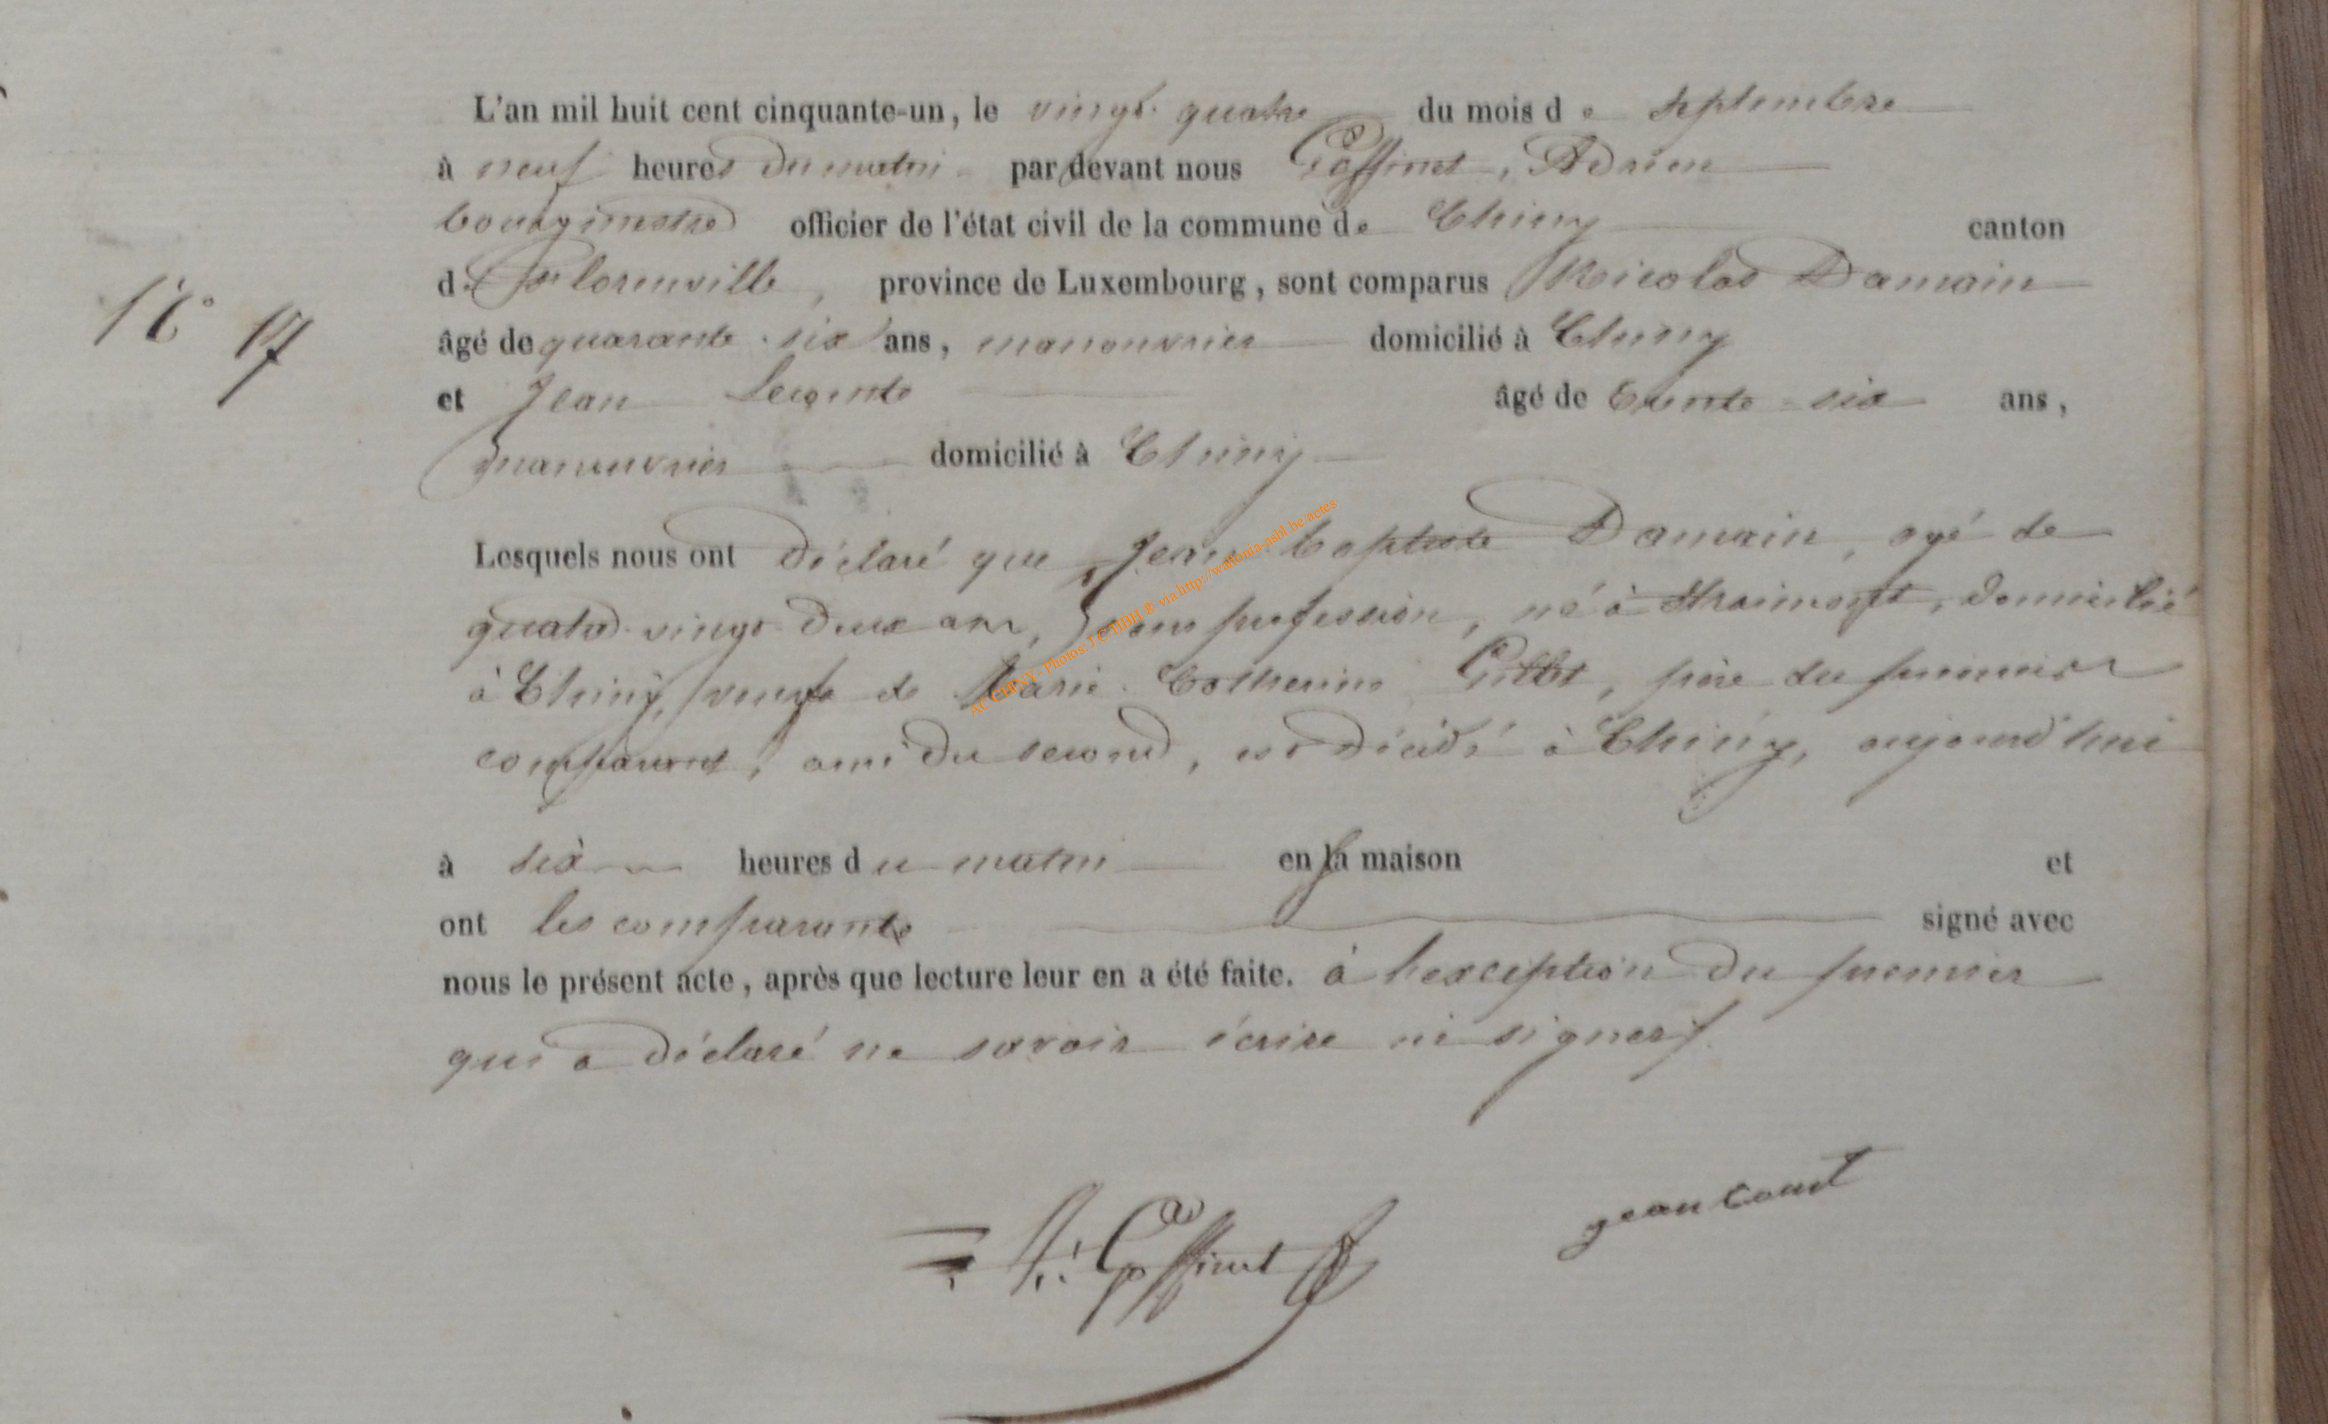 L'an mil huit cent cinquante-un, le vingt-quatre du mois de Septembre
à neuf heures du matin par devant nous Goffinet, Adrien
bourgmestre officier de l'état civil de la commune de Chiny canton
de Florenville, province de Luxembourg, sont comparus Nicolas Damain
N° 17
âgé de quarante-six ans, manouvrier domicilié à Chiny
et Jean Lecomte âgé de trente-six ans,
manouvrier domicilié à Chiny
Lesquels nous ont déclaré que Jean Baptiste Damain, agé de
quatre-vingt-deux ans, sans profession, né à Straimont, domicilié
à Chiny, veuf de Marie Catherine Gillet, père du premier
comparant, ami du second, est décédé à Chiny, aujourd'hui
à six heures du matin en sa maison et
ont les comparants signé avec
nous le présent acte, après que lecture leur en a été faite. à l'exception du premier
qui a déclaré ne savoir écrire ni signer
A: Goffinet
jean Comt
AC CHINY - Photos: J.C. via http://wallonia-asbl.be/actes